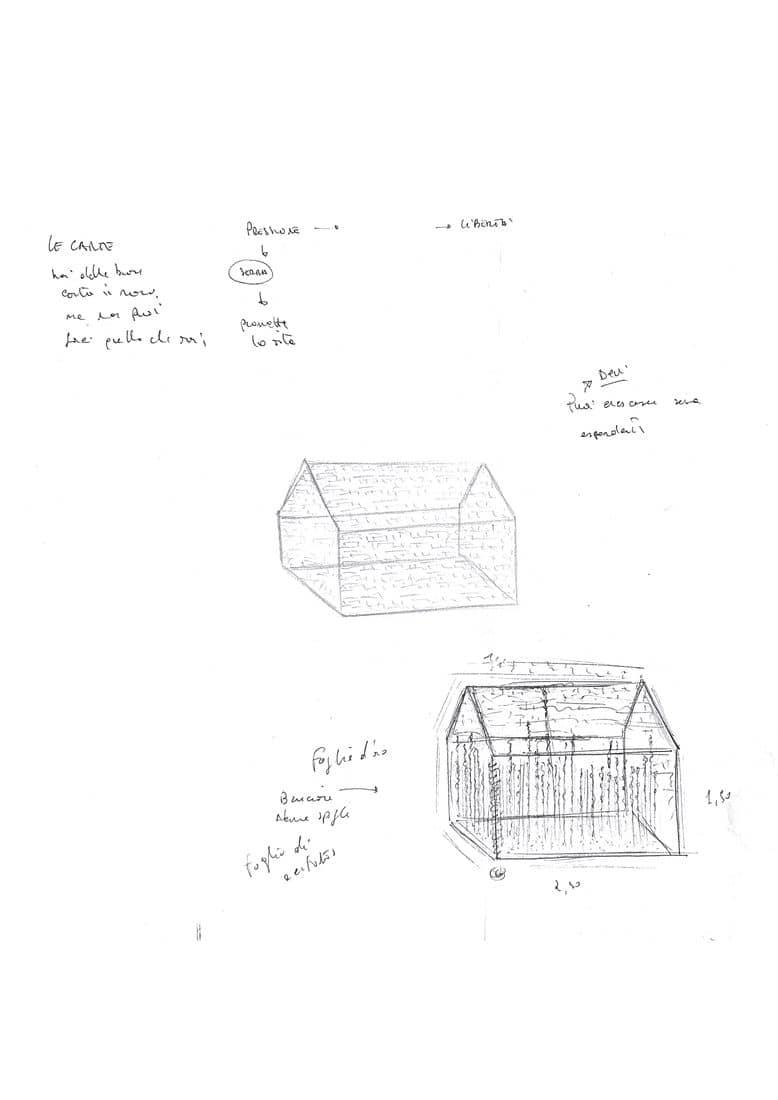 LE CARTE
hai delle buone
carte in mano,
ma non puoi
fare quello che vuoi
PRESSIONE →
→ LIBERTÀ
SERRA
permette
la vita
Devi
Puoi crescere senza
espanderti
Foglie d'oro
foglio di
1,50
2,50